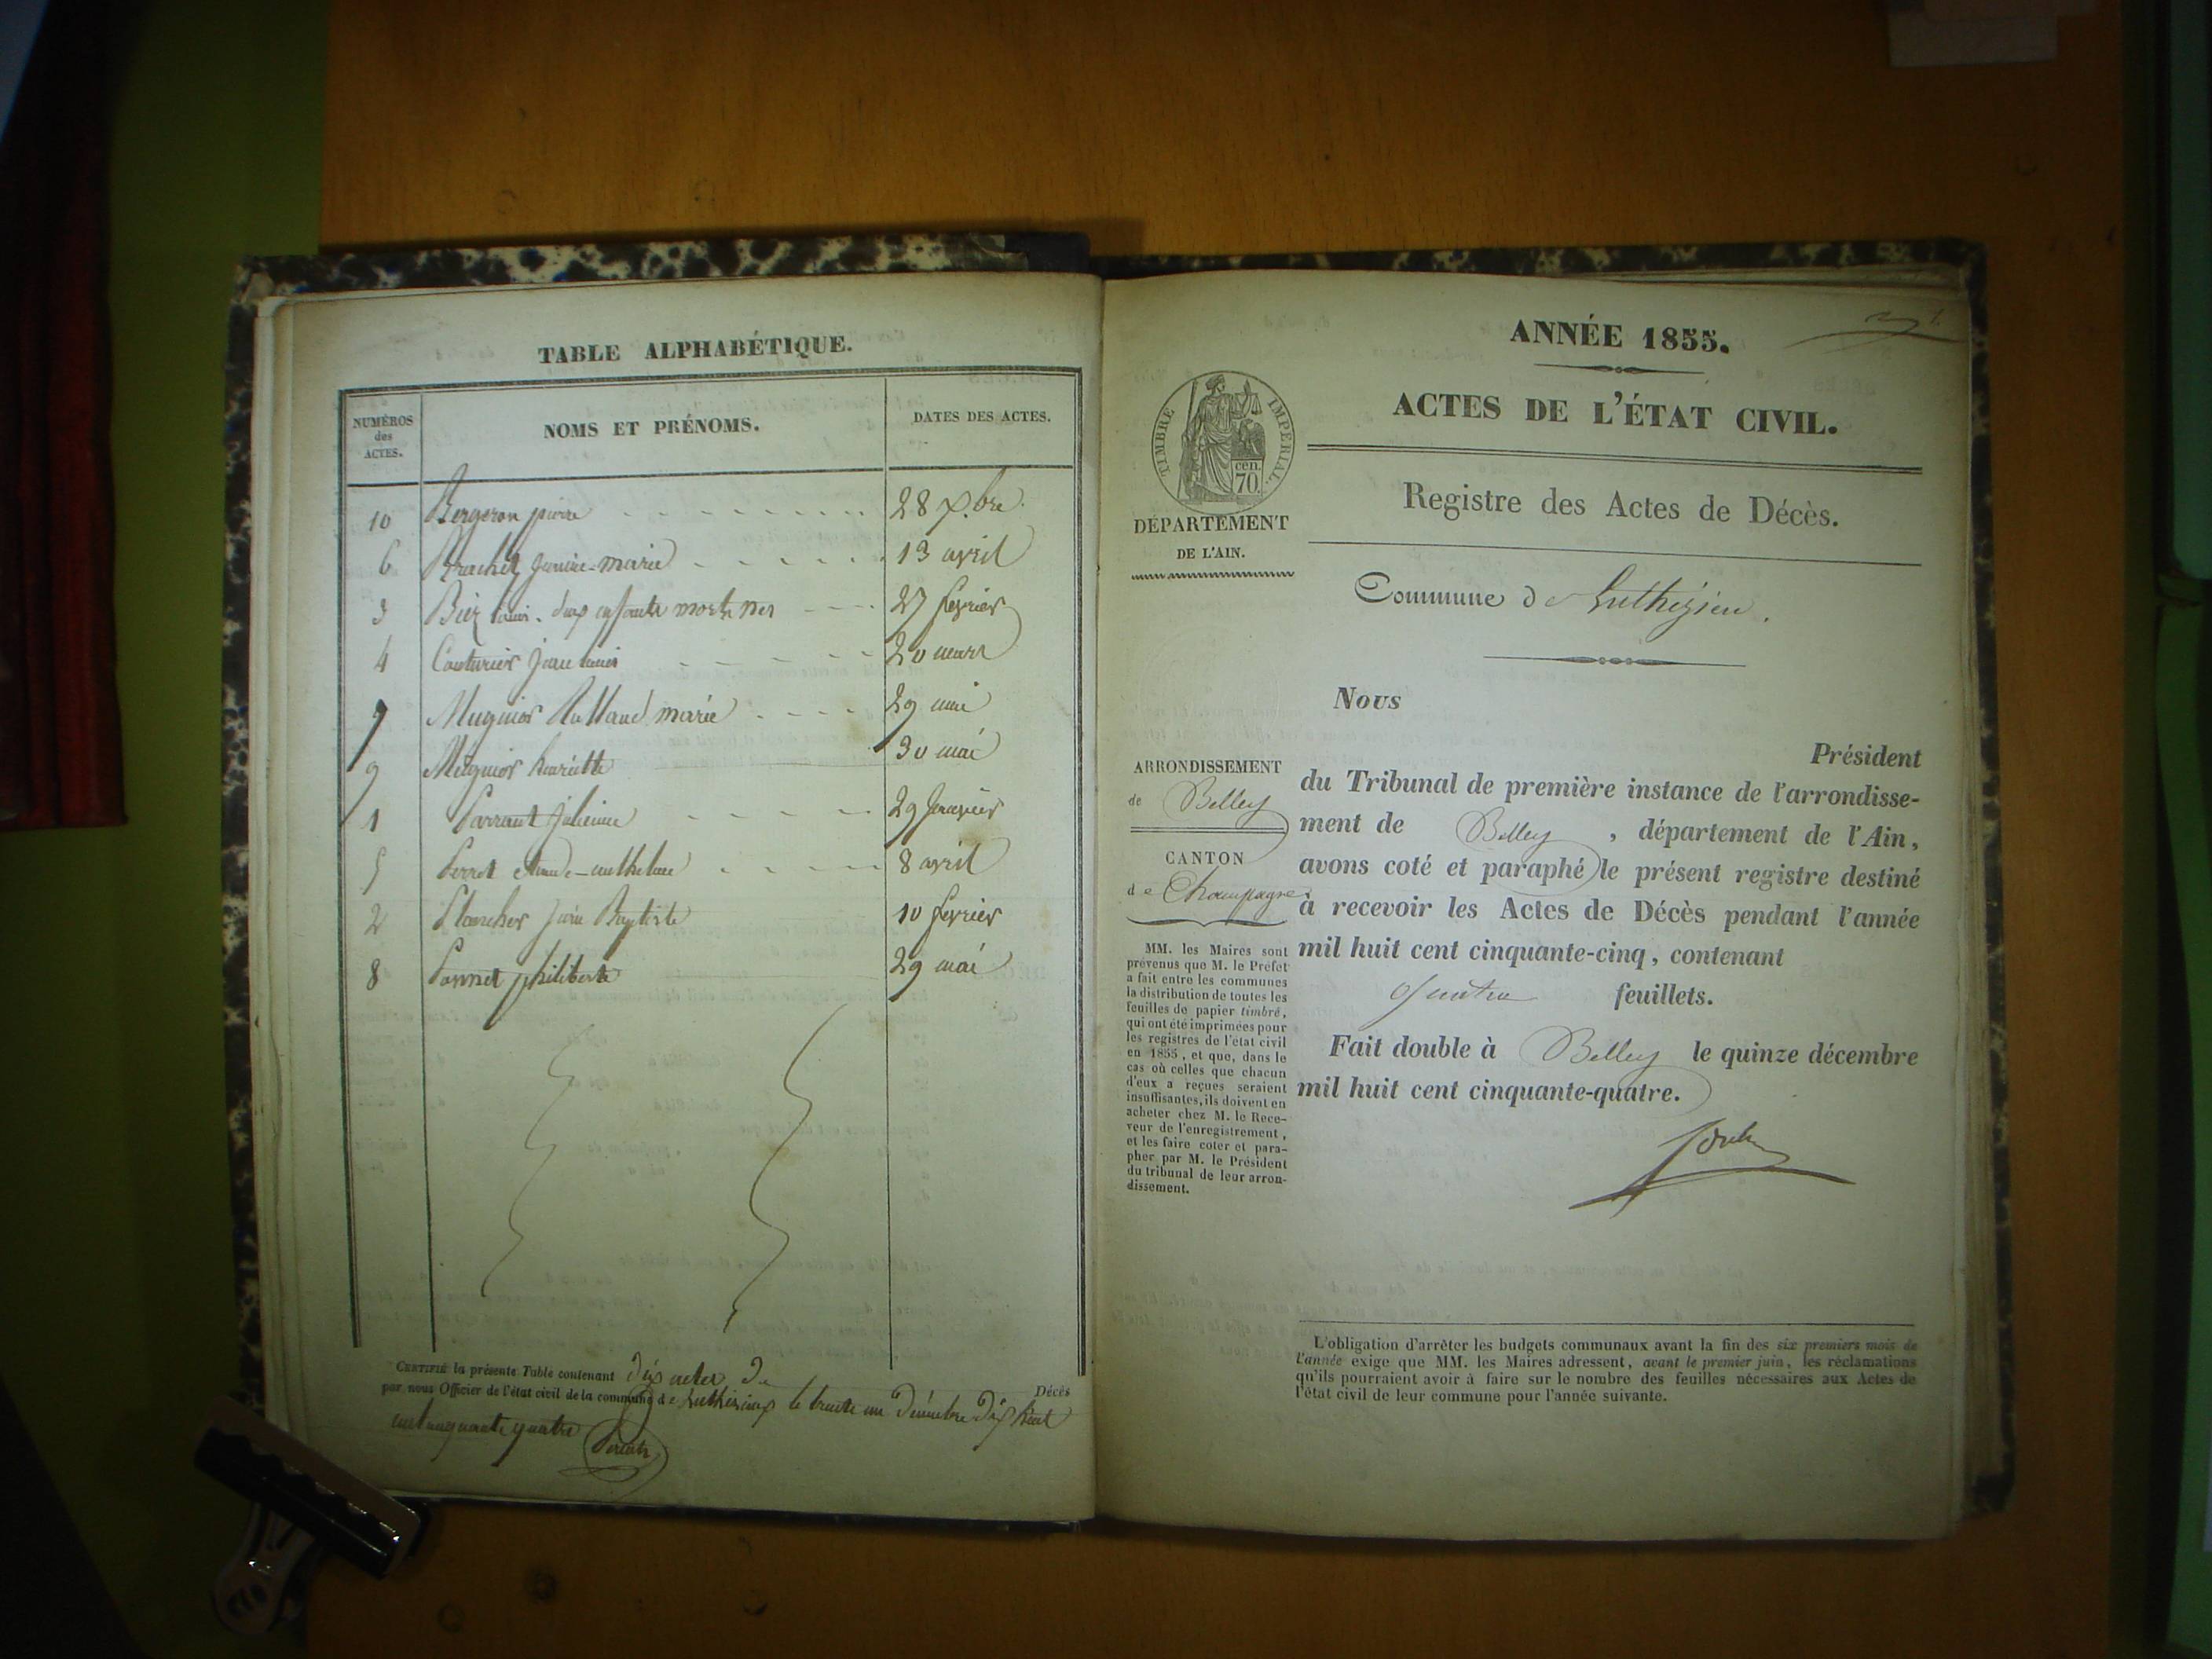 TABLE ALPHABÉTIQUE.
NUMÉROS
des
ACTES.
NOMS ET PRÉNOMS.
DATES DES ACTES.
10 Bergeron pierre 28 Xbre
6 Brachet marie 13 avril
3 Biez Louis. deux enfants morts nés 27 février
4 Couturier Jean Louis 20 mars
7 Mugnier Rolland marie 29 mai
9 Mugnier henriette 30 mai
1 Parrant Julienne 29 Janvier
5 Perret 8 avril
2 Plancher Jean Baptiste 10 février
8 philiberte 29 mai
CERTIFIÉ la présente Table contenant dix actes de Décès
par nous Officier de l'état civil de la commune de Luthézieu le trente un Décembre dix huit
cent cinquante quatre
1.
ANNÉE 1855.
ACTES DE L'ÉTAT CIVIL.
TIMBRE IMPÉRIAL
cen.
70
Registre des Actes de Décès.
DÉPARTEMENT
DE L'AIN.
Commune de Luthézieu.
Nous
Président
du Tribunal de première instance de l'arrondisse-
ment de Belley, département de l'Ain,
avons coté et paraphé le présent registre destiné
à recevoir les Actes de Décès pendant l'année
mil huit cent cinquante-cinq, contenant
quatre feuillets.
Fait double à Belley le quinze décembre
mil huit cent cinquante-quatre.
ARRONDISSEMENT
de Belley
CANTON
de Champagne
MM. les Maires sont
prévenus que M. le Préfet
a fait entre les communes
la distribution de toutes les
feuilles de papier timbré,
qui ont été imprimées pour
les registres de l'état civil
en 1855, et que, dans le
cas où celles que chacun
d'eux a reçues seraient
insuffisantes, ils doivent en
acheter chez M. le Rece-
veur de l'enregistrement,
et les faire coter et para-
pher par M. le Président
du tribunal de leur arron-
dissement.
L'obligation d'arrêter les budgets communaux avant la fin des six premiers mois de
l'année exige que MM. les Maires adressent, avant le premier juin, les réclamations
qu'ils pourraient avoir à faire sur le nombre des feuilles nécessaires aux Actes de
l'état civil de leur commune pour l'année suivante.